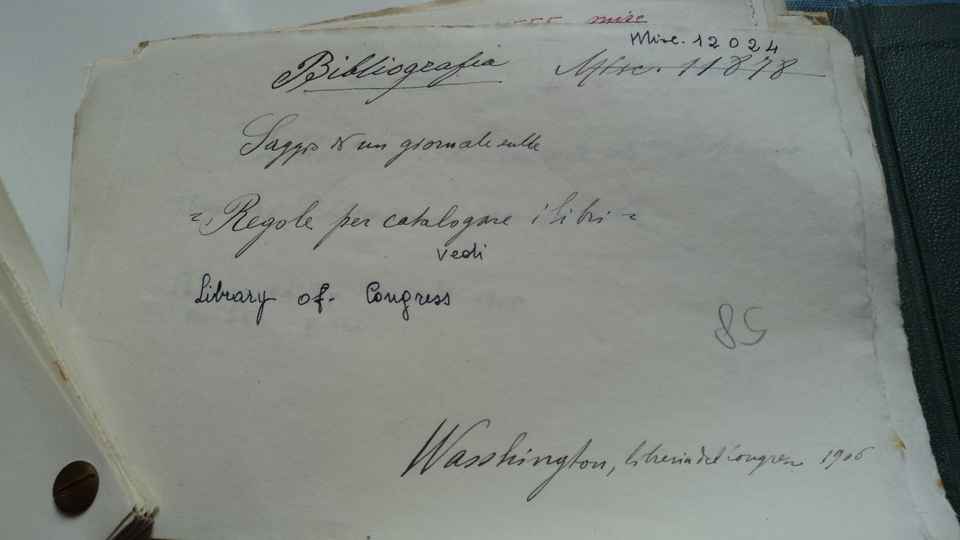 misc
Misc. 12024
Bibliografia Misc. 11878
Saggio di un giornale sulle
"Regole per catalogare i libri"
vedi
Library of Congress
85
Wasshington, libreria del Congresso 1906